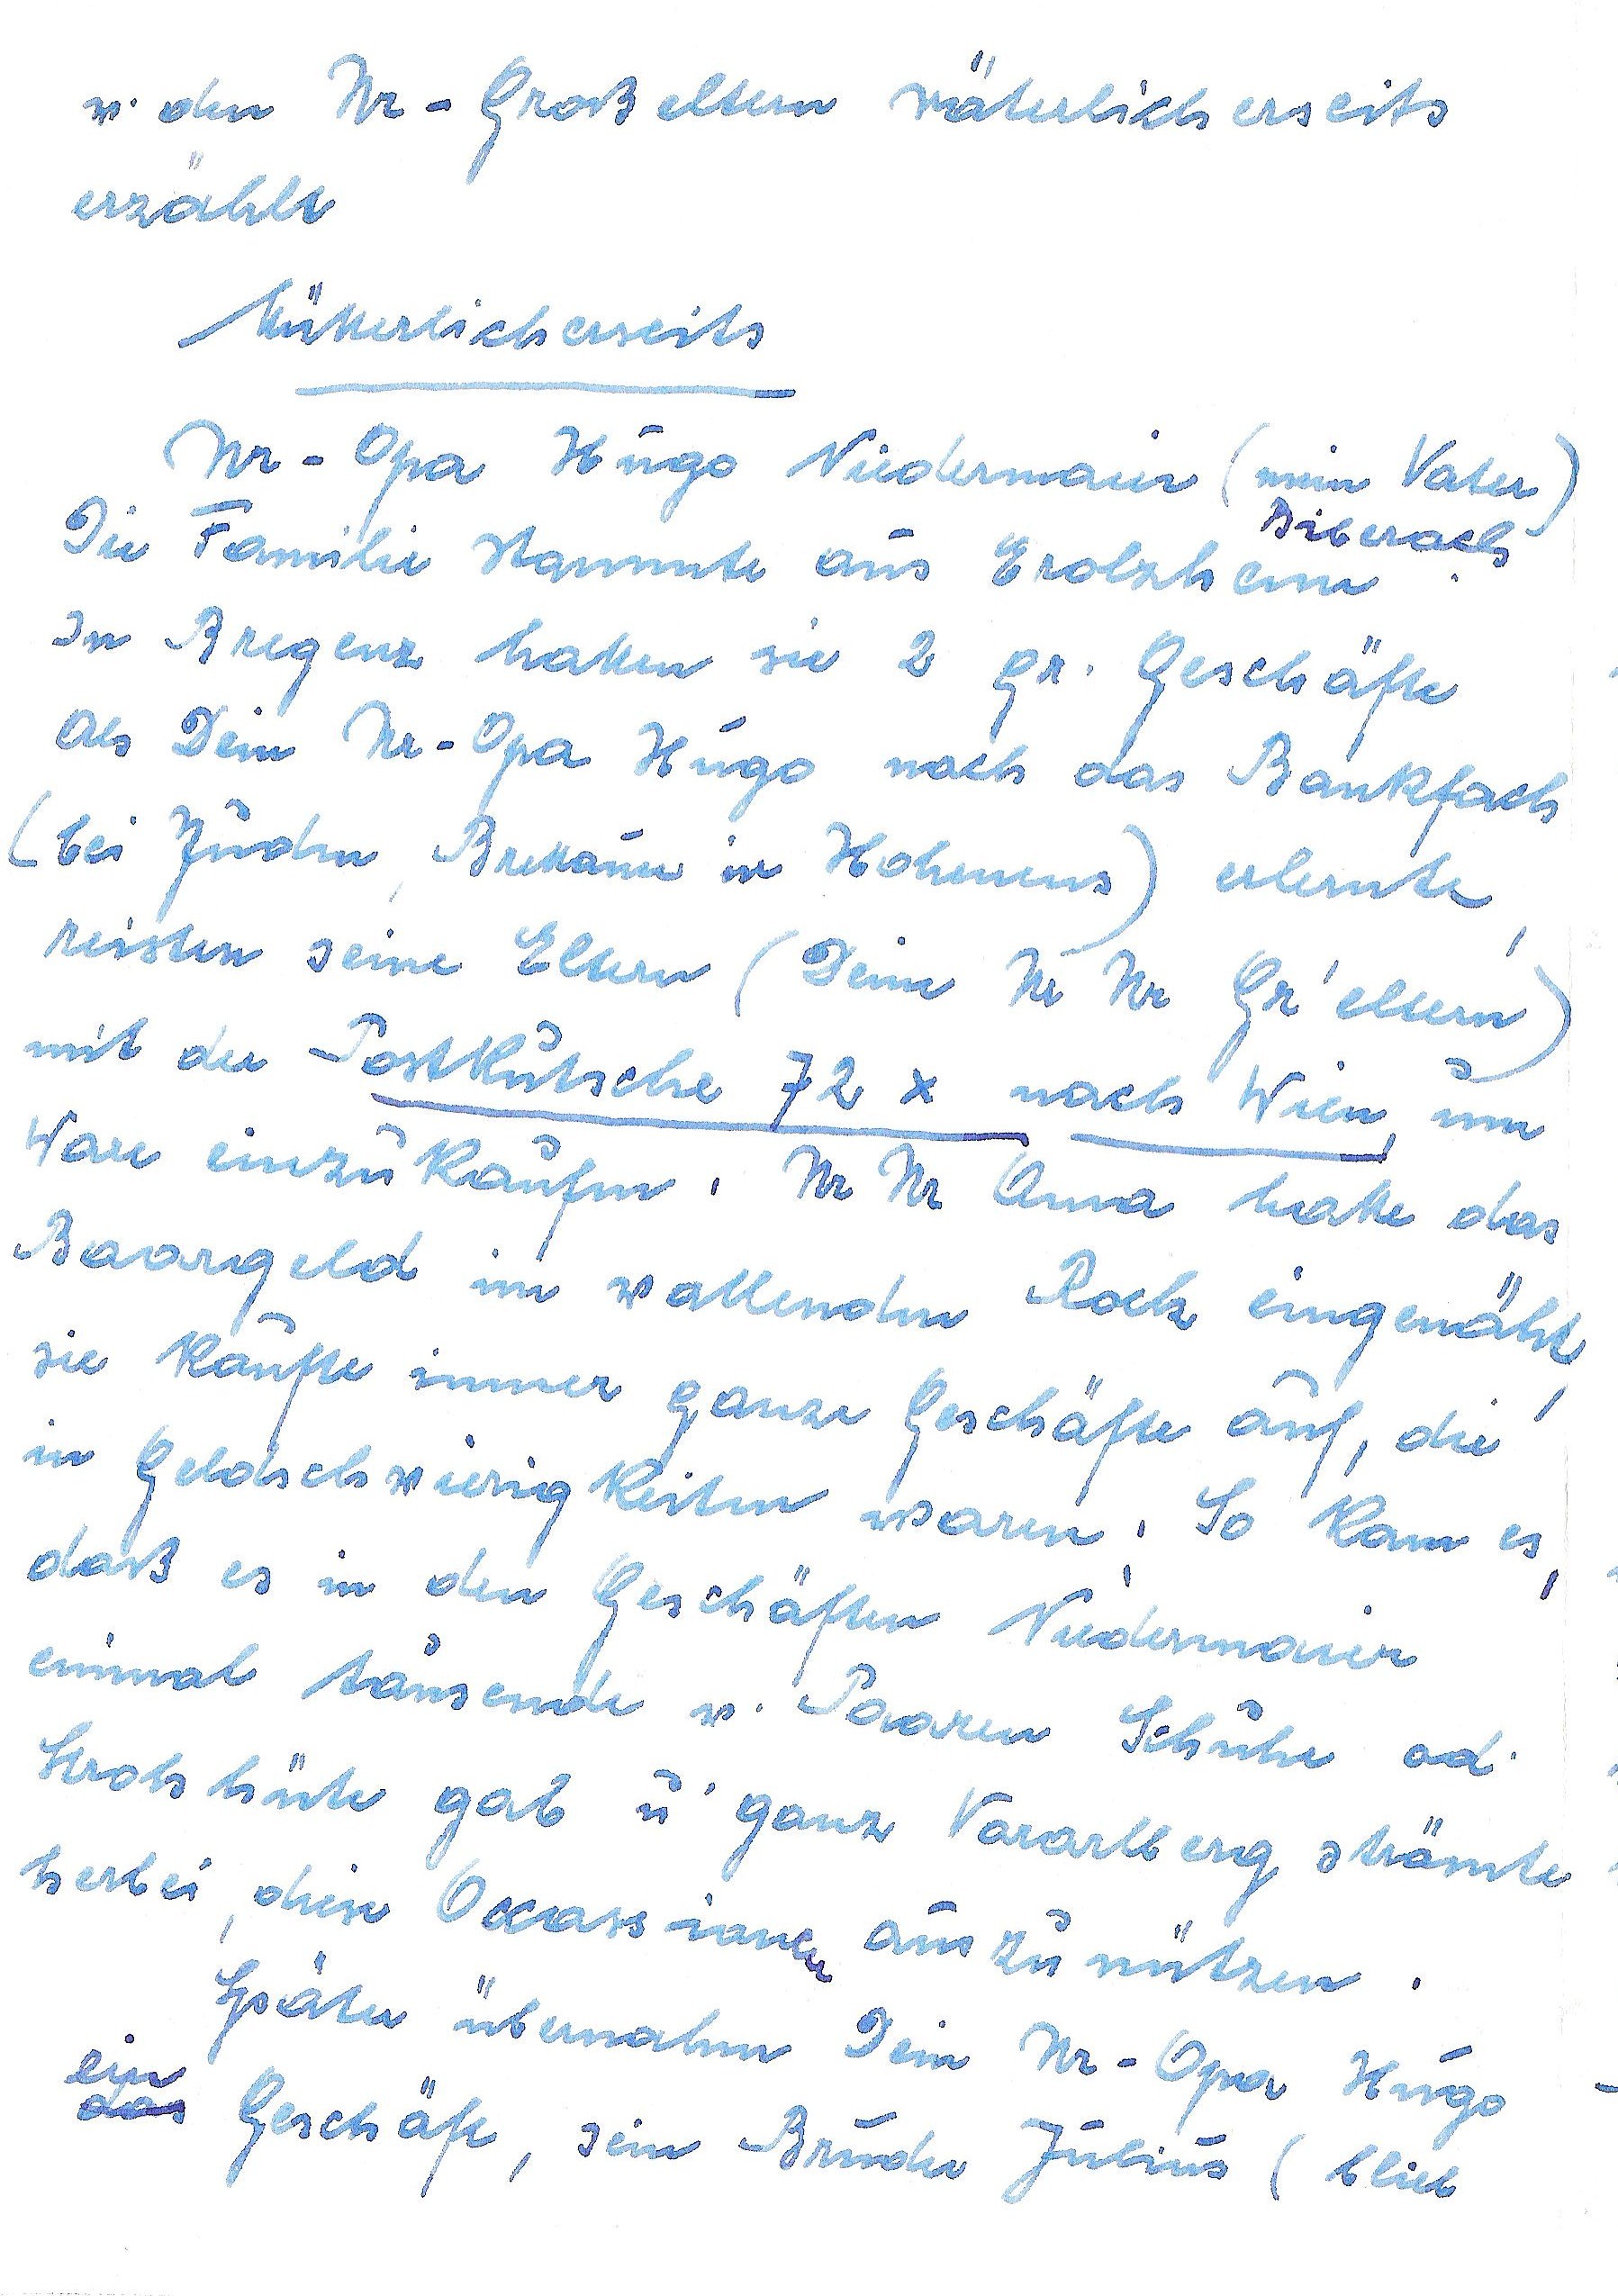 v. den Ur-Großeltern väterlicherseits
erzählt
Mütterlicherseits
Ur-Opa Hugo Niedermaier (mein Vater)
Biberach
Die Familie stammte aus Erolzheim.
In Bregenz hatten sie 2 gr. Geschäfte
Als Dein Ur-Opa Hugo noch das Bankfach
(bei Juden, in Hohenems) erlernte,
reisten seine Eltern (Deine Ur Ur Gr'eltern)
mit der Postkutsche 72 x nach Wien, um
Ware einzukaufen. Ur Ur Anna hatte das
Baargeld im wallenden Rock eingenäht,
sie kaufte immer ganze Geschäfte auf, die
in Geldschwierigkeiten waren. So kam es,
daß es in den Geschäften Niedermaier
einmal tausende v. Paaren Schuhe od.
Strohhüte gab u. ganz Vorarlberg strömte
herbei, diese Occassionen auszunützen.
Später übernahm Dein Ur-Opa Hugo
ein
das Geschäft, sein Bruder Julius (blieb